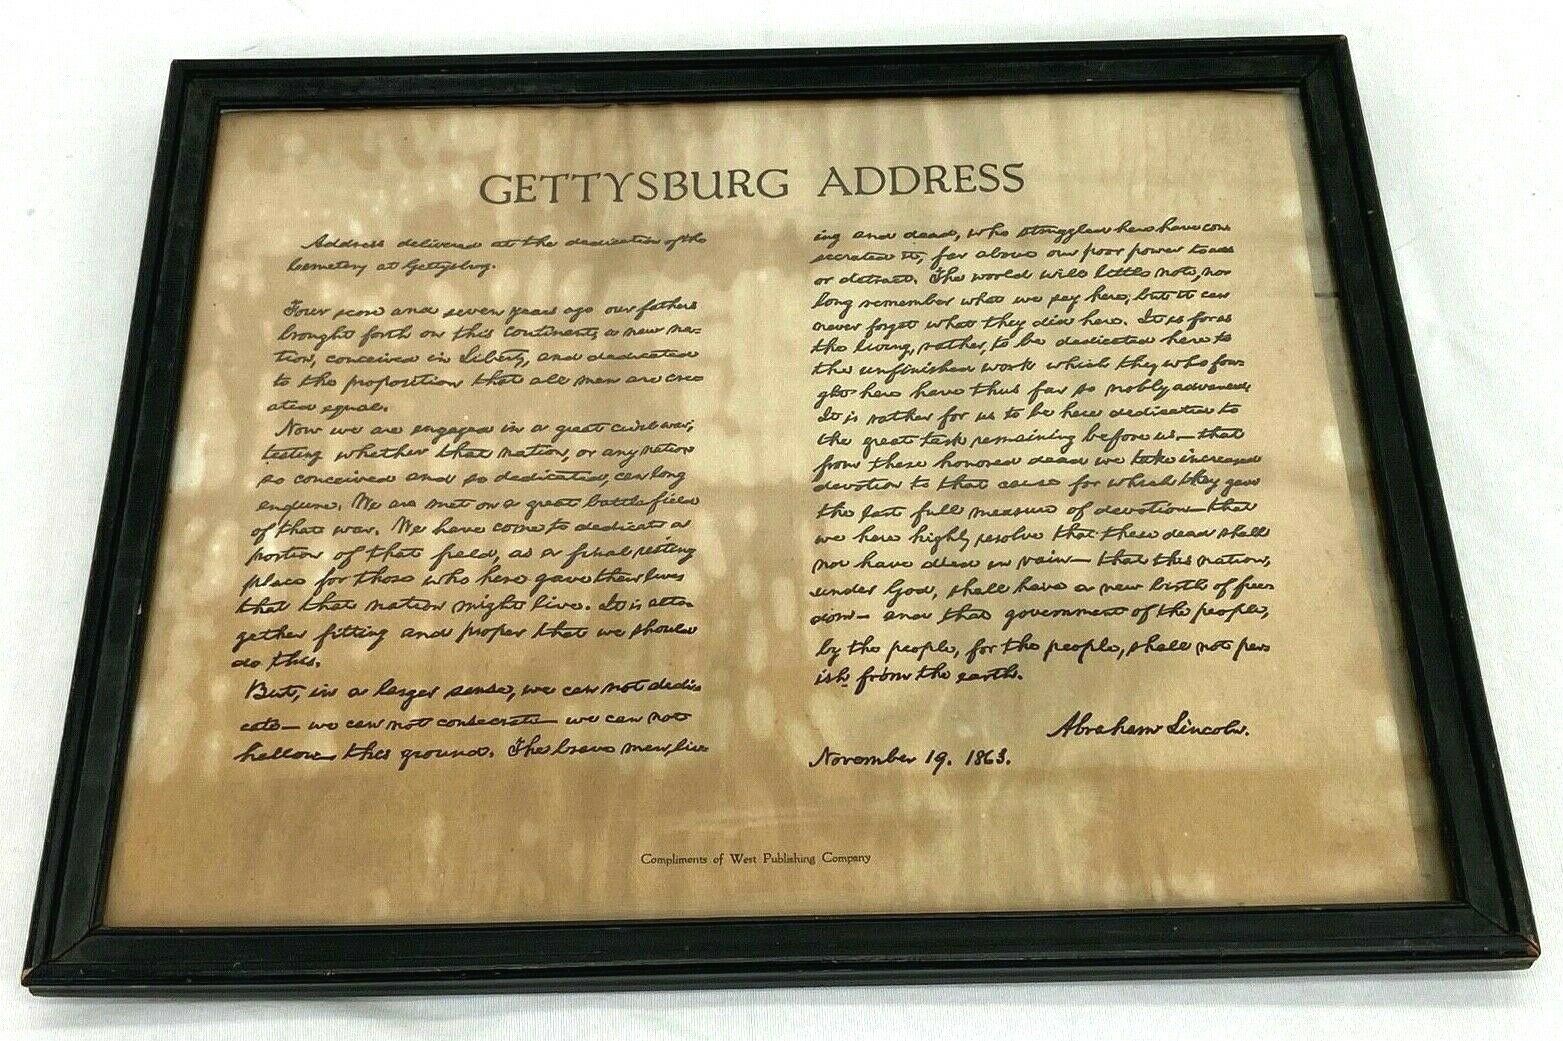 GETTYSBURG ADDRESS
Address delivered at the dedication of the
Cemetery at Gettysburg.
Four score and seven years ago our fathers
brought forth on this continent, a new na-
tion, conceived in Liberty, and dedicated
to the proposition that all men are cre-
ated equal.
Now we are engaged in a great civil war,
testing whether that nation, or any nation
so conceived and so dedicated, can long
endure. We are met on a great battle-field
of that war. We have come to dedicate a
portion of that field, as a final resting
place for those who here gave their lives
that that nation might live. It is alto-
gether fitting and proper that we should
do this.
But, in a larger sense, we can not dedi-
cate— we can not consecrate— we can not
hallow— this ground. The brave men, liv-
ing and dead, who struggled here have con-
secrated it, far above our poor power to add
or detract. The world will little note, nor
long remember what we say here, but it can
never forget what they did here. It is for us
the living, rather, to be dedicated here to
the unfinished work which they who fou-
ght here have thus far so nobly advanced.
It is rather for us to be here dedicated to
the great task remaining before us— that
from these honored dead we take increased
devotion to that cause for which they gave
the last full measure of devotion— that
we here highly resolve that these dead shall
not have died in vain— that this nation,
under God, shall have a new birth of free-
dom— and that government of the people,
by the people, for the people, shall not per-
ish from the earth.
Abraham Lincoln.
November 19. 1863.
Compliments of West Publishing Company